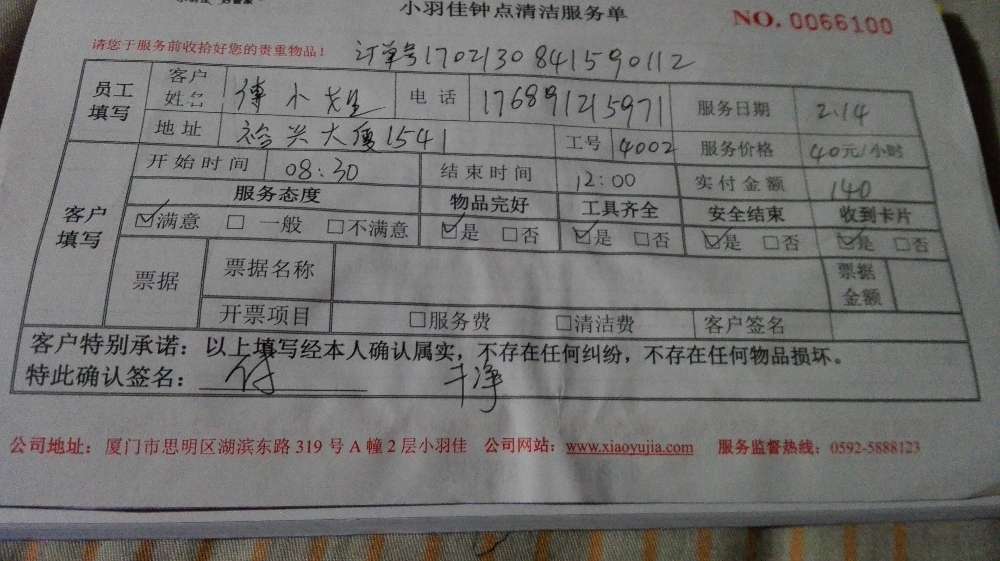 小羽佳钟点清洁服务单
NO. 0066100
请您于服务前收拾好您的贵重物品！ 订单号1702130841590112
员工填写 客户姓名 傅小先生 电话 176891215971 服务日期 2.14
地址 裕兴大厦1541 工号 4002 服务价格 40元/小时
客户填写 开始时间 08:30 结束时间 12:00 实付金额 140
服务态度 物品完好 工具齐全 安全结束 收到卡片
☑满意 □一般 □不满意 ☑是 □否 ☑是 □否 ☑是 □否 ☑是 □否
票据 票据名称 票据金额
开票项目 □服务费 □清洁费 客户签名
客户特别承诺：以上填写经本人确认属实，不存在任何纠纷，不存在任何物品损坏。
特此确认签名： 付 干净
公司地址：厦门市思明区湖滨东路 319 号 A 幢 2 层小羽佳 公司网站：www.xiaoyujia.com 服务监督热线：0592-5888123